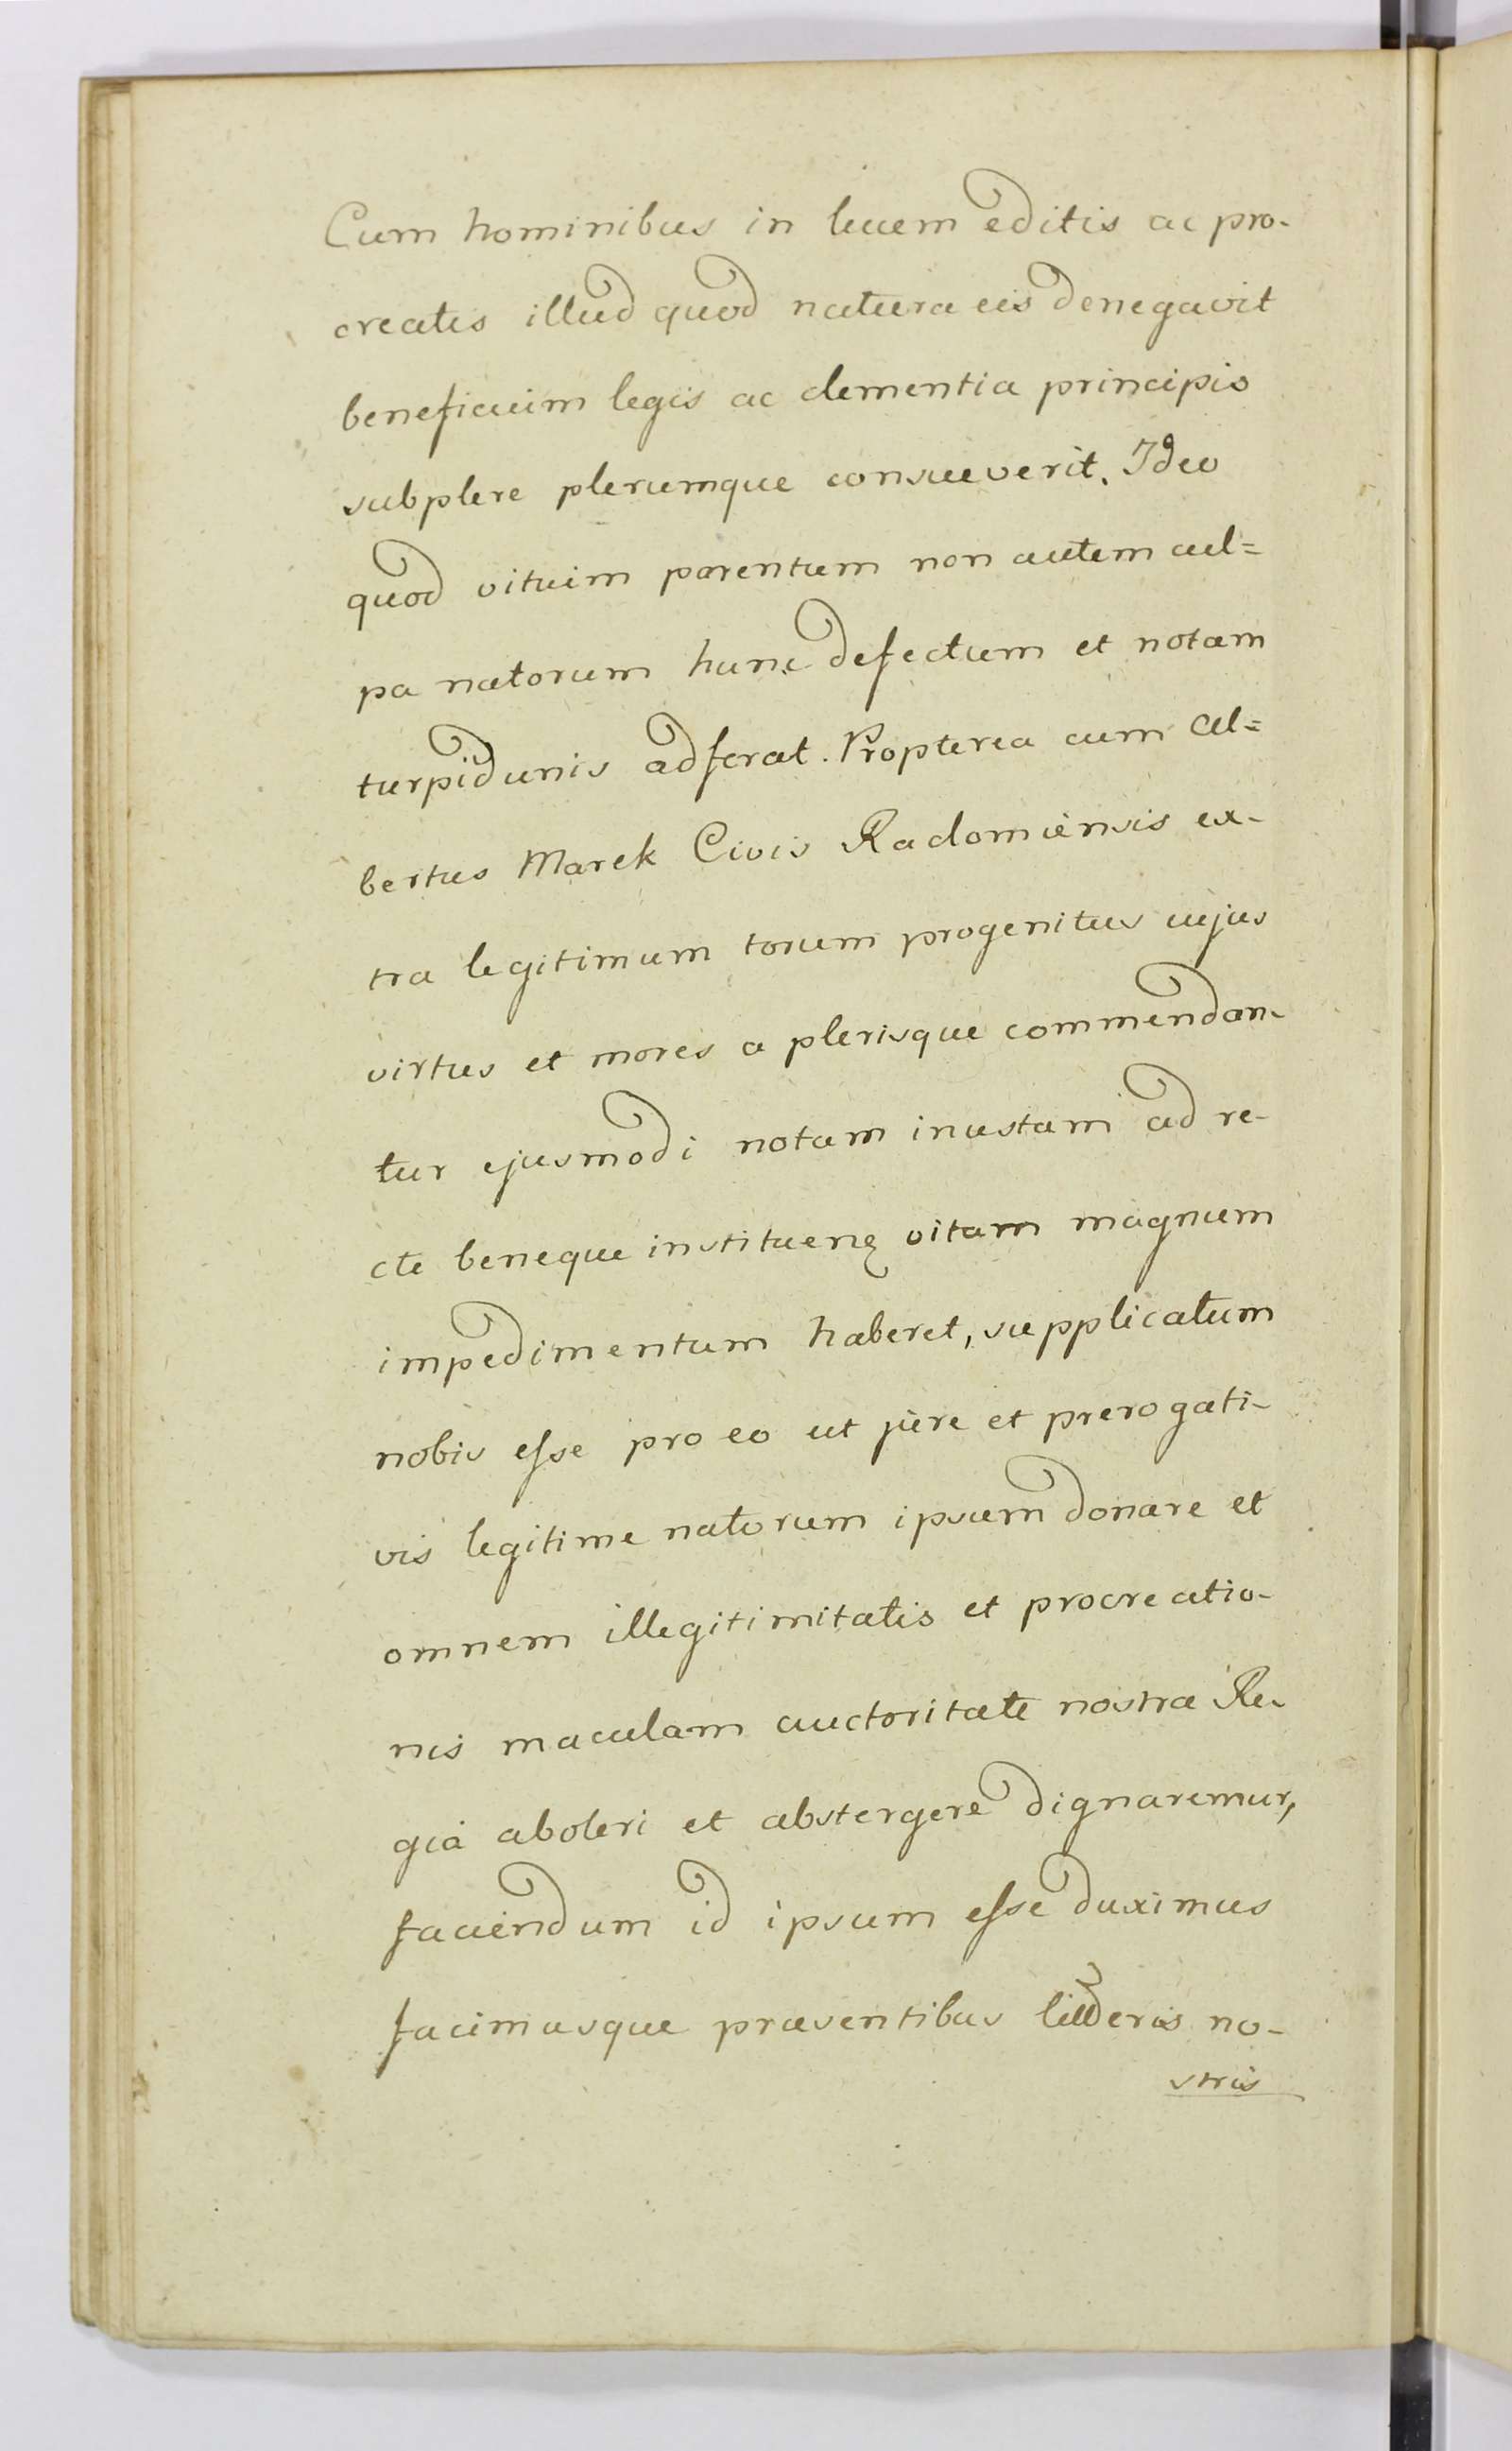 Cum hominibus in lucem editis ac pro-
creatis illud quod natura eis denegavit
beneficium legis ac clementia principis
subplere plerumque consueverit. Ideo
quod vitium parentum non autem cul=
pa natorum hunc defectum et notam
turpidunis adferat. Propterea cum Al=
bertus Marek Civis Radomiensis ex-
tra legitimum torum progenitus cujus
virtus et mores a plerisque commendan-
tur ejusmodi notam inustam ad re-
cte beneque instituenę vitam magnum
impedimentum haberet, supplicatum
nobis esse pro eo ut jure et prerogati-
vis legitime natorum ipsum donare et
omnem illegitimitatis et procreatio-
nis maculam auctoritate nostra Re-
gia aboleri et abstergere dignaremur,
faciendum id ipsum esse duximus
facimusque præsentibus no-
stris